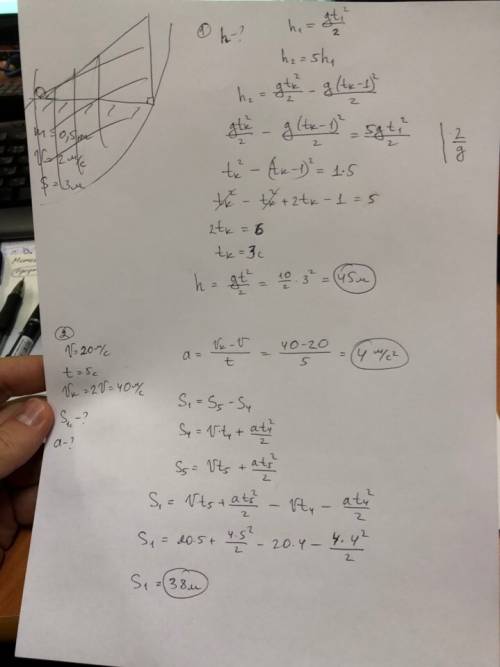 m = 0,5 м
V = 2 м/с
S = 3 м
① h-? h₁ = gt₁²/2
h₂ = 5h₁
h₂ = gtк²/2 - g(tк-1)²/2
gtк²/2 - g(tк-1)²/2 = 5gt₁²/2 | · 2/g
tк² - (tк-1)² = 1·5
tк² - tк² + 2tк - 1 = 5
2tк = 6
tк = 3с
h = gt²/2 = 10/2 · 3² = 45м
②
V = 20 м/с
t = 5с
Vк = 2V = 40 м/с
S₁ - ?
a - ?
a = (Vк - V)/t = (40-20)/5 = 4 м/с²
S₁ = S₅ - S₄
S₄ = V·t₄ + at₄²/2
S₅ = Vt₅ + at₅²/2
S₁ = Vt₅ + at₅²/2 - Vt₄ - at₄²/2
S₁ = 20·5 + 4·5²/2 - 20·4 - 4·4²/2
S₁ = 38м